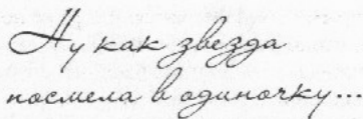 Ну как звезда
посмела в одиночку...